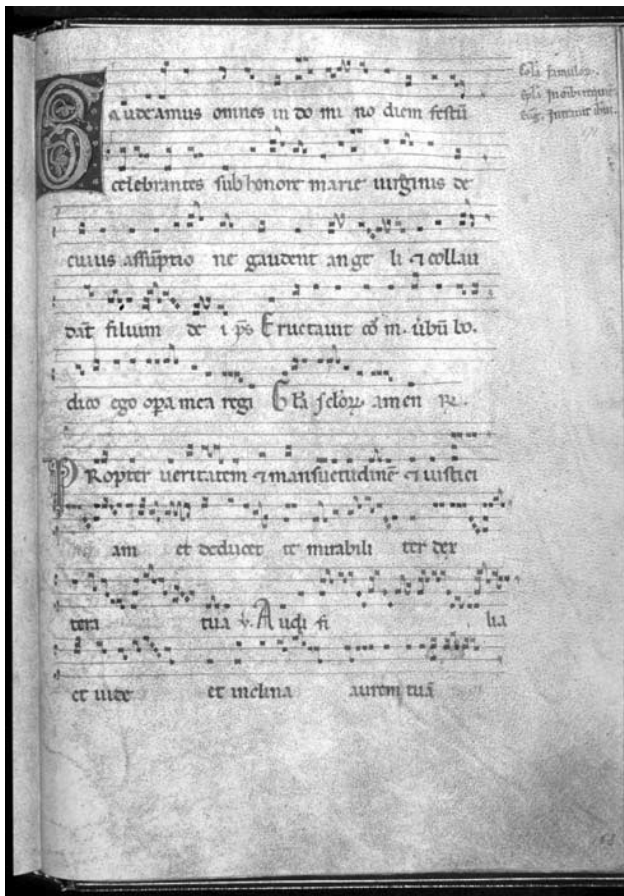 Gaudeamus omnes in do mi no diem festū
celebrantes sub honore marie uirginis de
cuius assūptio ne gaudent ange li ⁊ collau
dāt filium de i ps Eructauit co m. úbū bo.
dico ego opa mea regi Gła sclor, amen R.
PRopter ueritatem ⁊ mansuetudinē ⁊ iustici
am et deducet te mirabili ter dex
tera tua v. Audi fi lia
et uide et inclina aurem tuā
famulor.